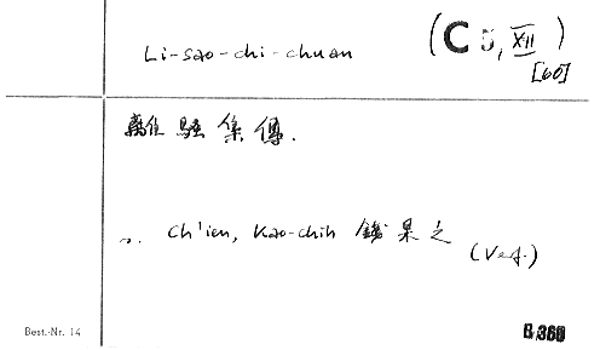 Li-sao-chi-chuan
(C 5, XII)
[60]
離騷集傳.
s. Ch'ien, Kao-chih 錢杲之
(Verf.)
Best.-Nr. 14
B 360